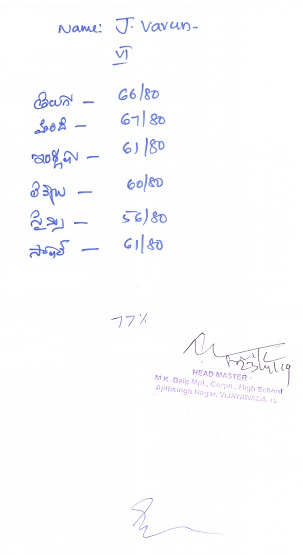 Name: J. Varun
VI
తెలుగు - 66/80
హిందీ - 67/80
ఇంగ్లీషు - 61/80
60/80
సైన్సు - 56/80
సోషల్ - 61/80
77%
23/4/19
HEAD MASTER
M.K. Baig Mpl., Corpn., High School
Ajithsingh Nagar, VIJAYAWADA-15